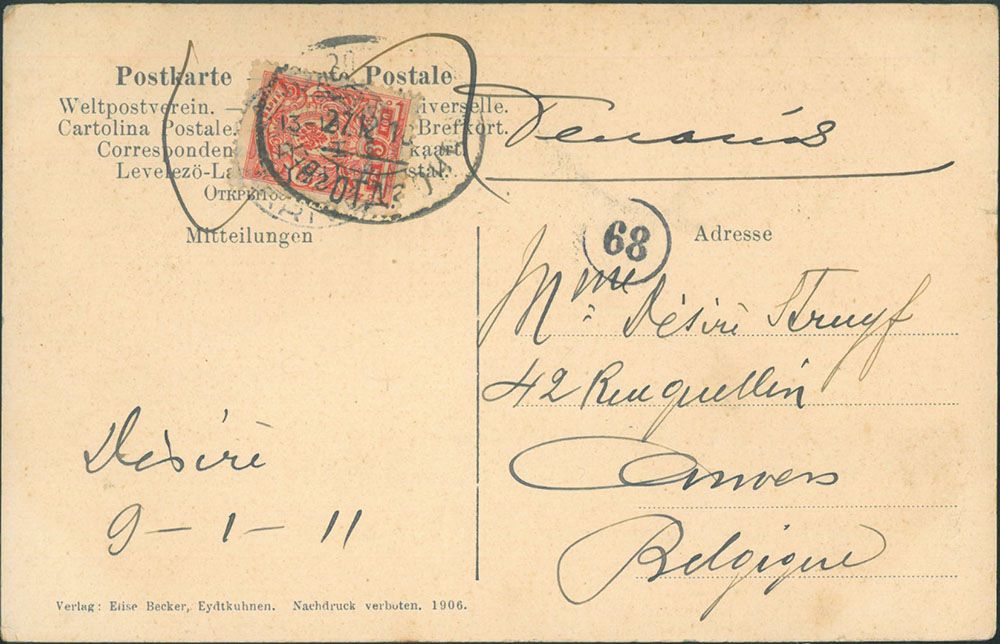 Postkarte — Postale
Weltpostverein. — iverselle.
Cartolina Postale. Brefkort.
Corresponden kaart
Levelezö-La stal.
Открытое
Mitteilungen
Adresse
68
Mme Désiré Struyf
42 Rue quellin
Anvers
Belgique
Désiré
9-1-11
Verlag: Elise Becker, Eydtkuhnen. Nachdruck verboten. 1906.